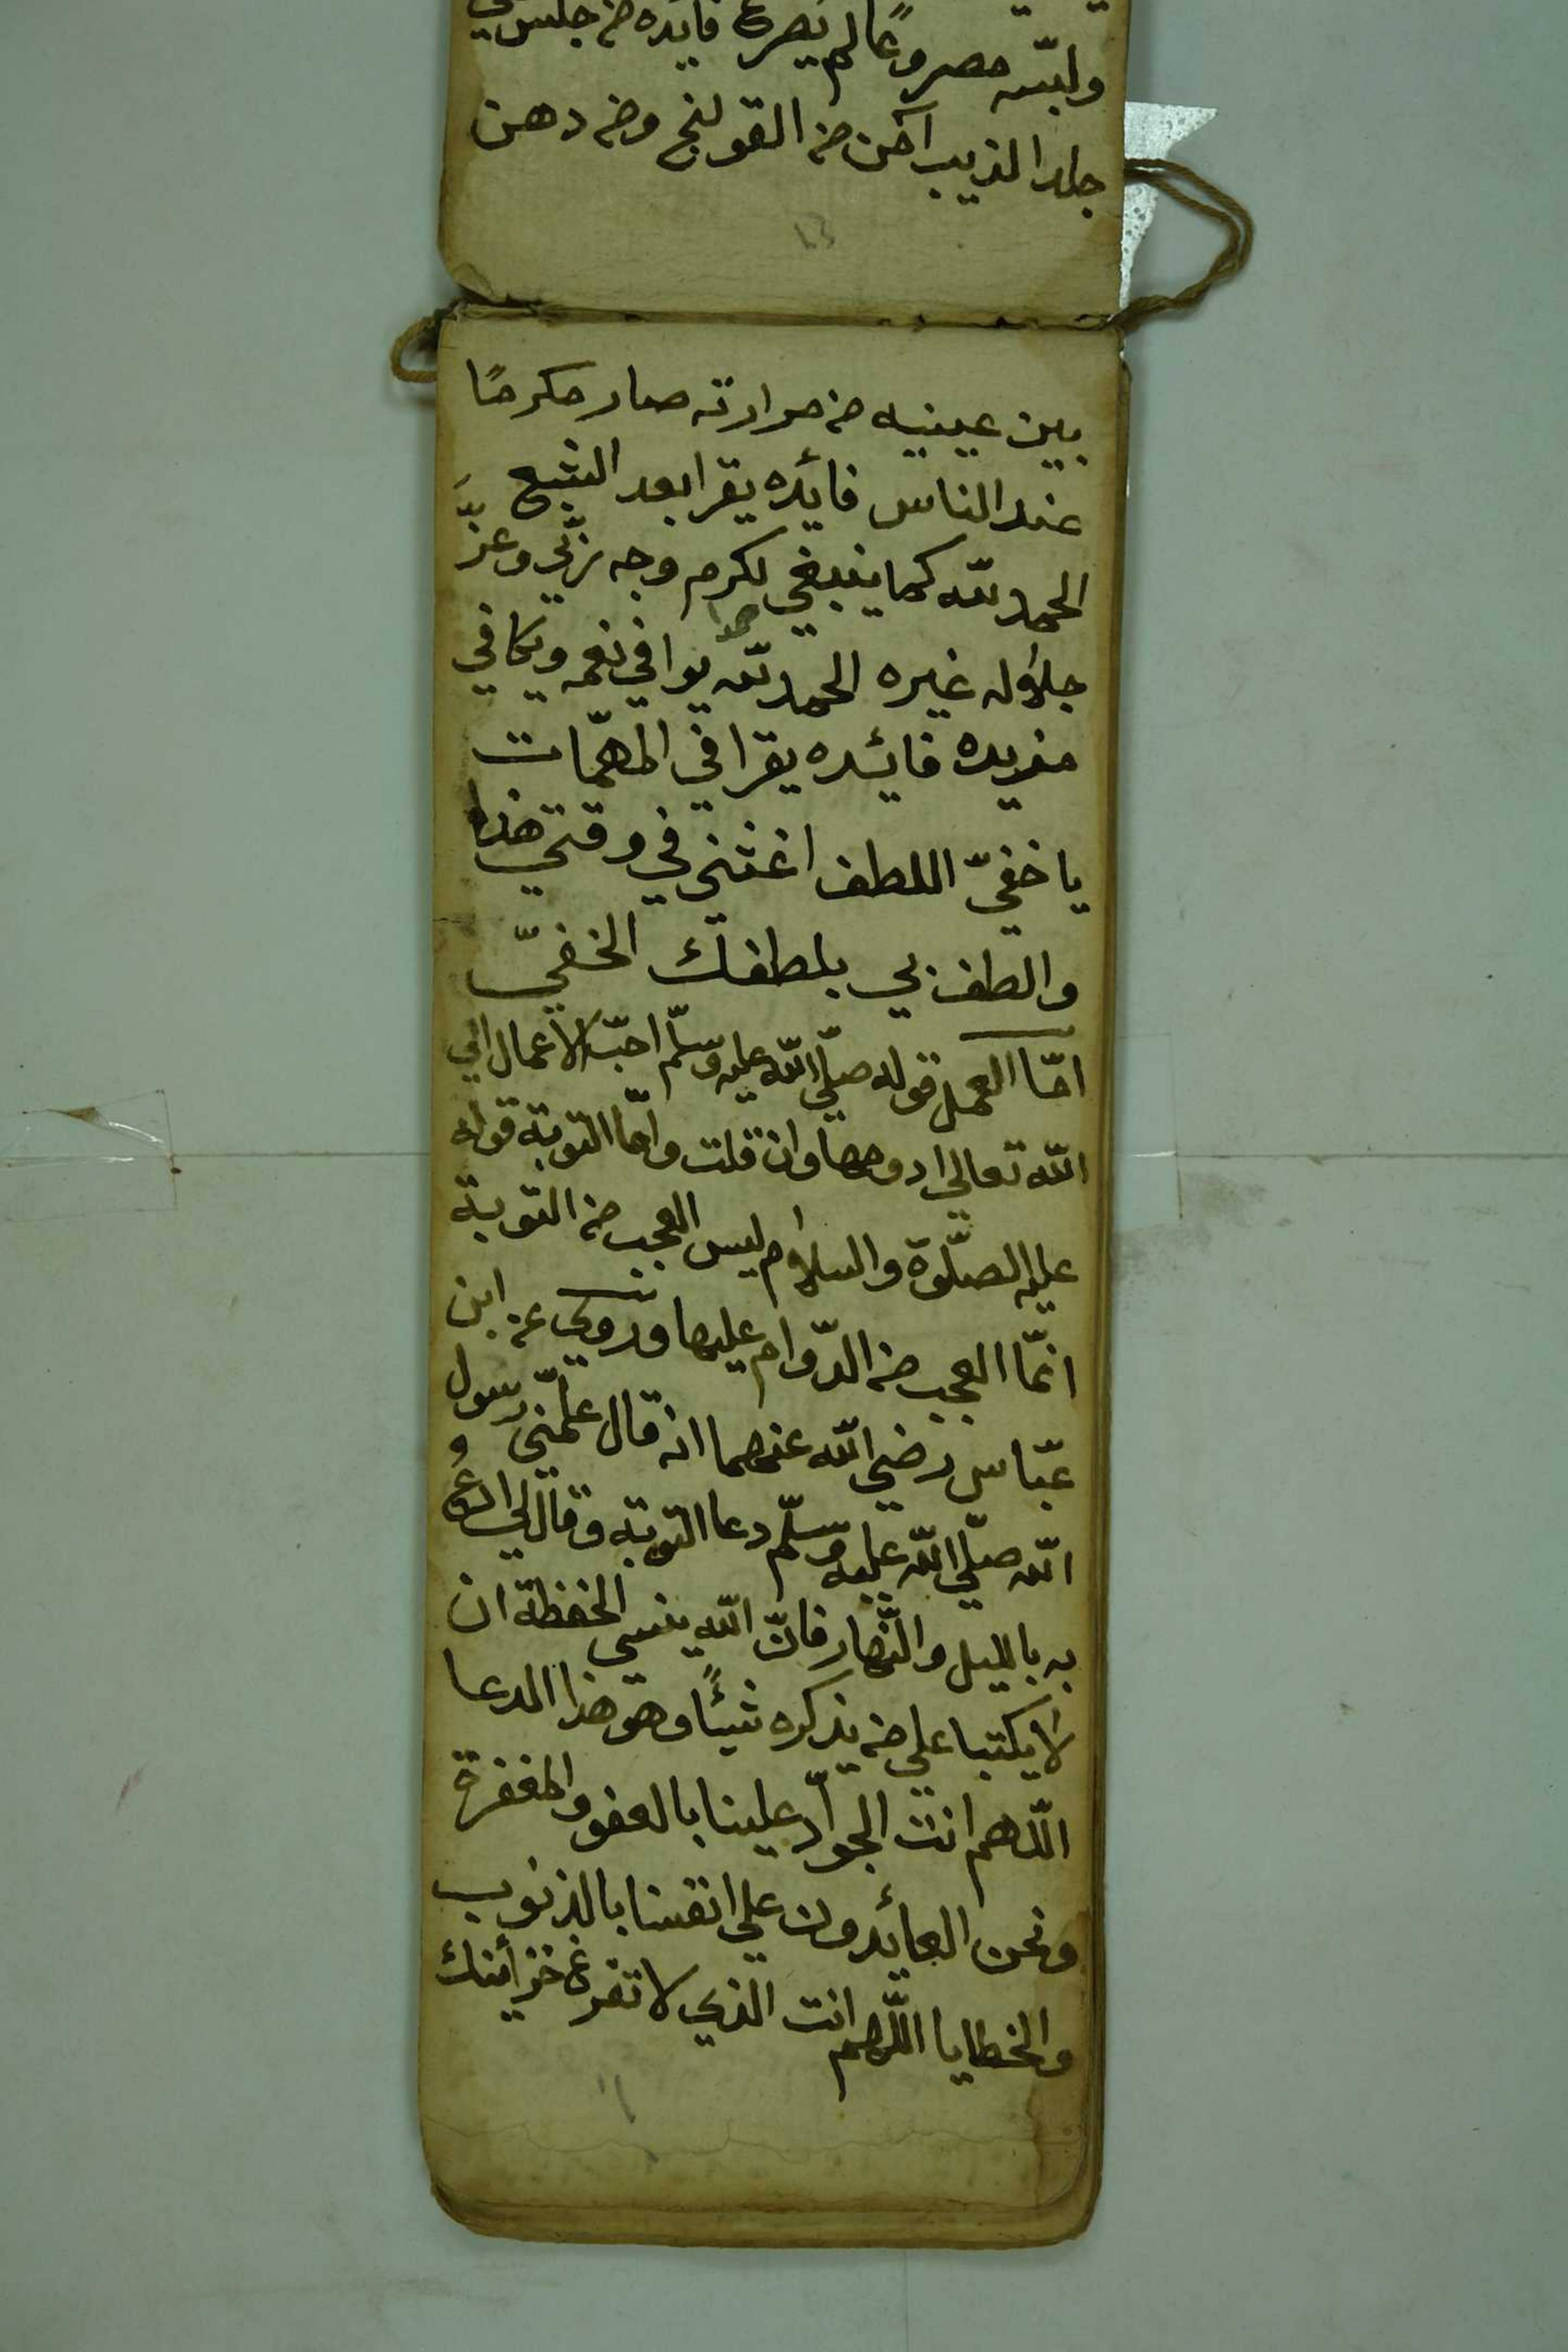 ولبسه مصروعًا لم يصرع فايده من جلس علي
جلد الذيب آمن من القولنج ومن دهن
بين عينيه من مرارته صار مكرمًا
عند الناس فائده يقرا بعد الشبع
الحمد لله كما ينبغي لكرم وجه ربّي وعزَّ
جلاله غيره الحمد لله حمدا يوافي نعمه ويكافي
مزيده فائده يقرا في المهمّات
يا خفيّ اللطف اغثني في وقتي هذا
والطف بي بلطفك الخفيّ
امّا العمل قوله صلّي الله عليه وسلّم احبّ الاعمال الي
الله تعالي ادومها وان قلت وامّا التوبة قوله
عليه الصّلوة والسلام ليس العجب من التوبة
انمّا العجب من الدّوام عليها وروي عن ابن
عبّاس رضي الله عنهما انه قال علّمني رسول
الله صلّي الله عليه وسلّم دعا التوبة وقال لي ادعُ
به بالليل والنّهار فانّ الله ينسي الحفظة ان
لا يكتبا علي من يذكره شيئًا وهو هذا الدعا
اللّهم انت الجوّاد علينا بالعفو والمغفرة
ونحن العائدون علي انفسنا بالذنوب
والخطايا اللّهم انت الذي لا تفرغ خزائنك